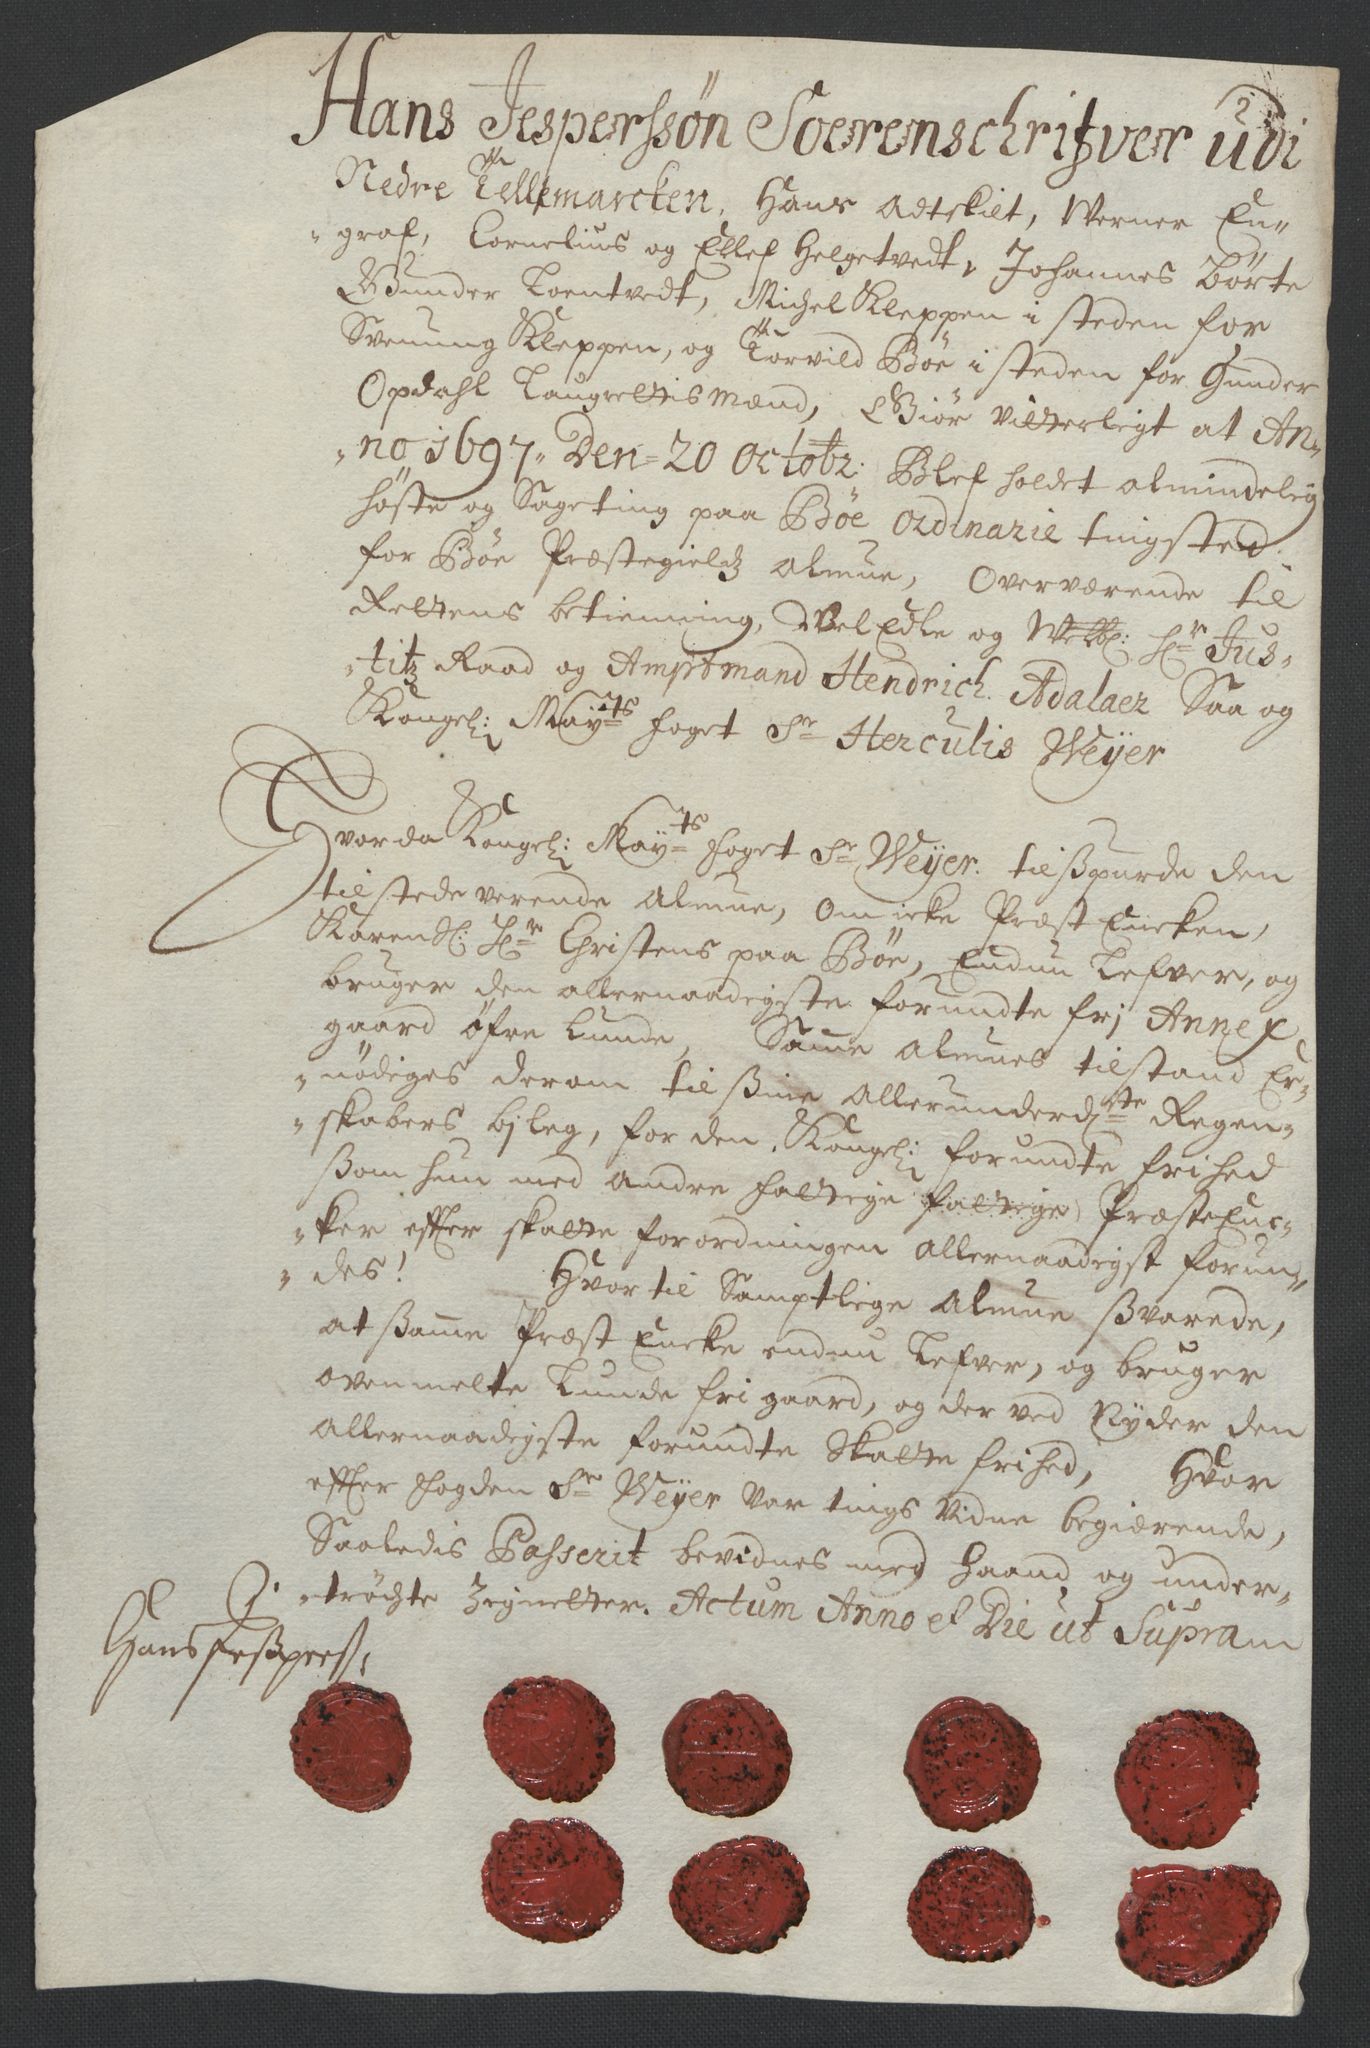 Hans Jesperssøn Soerenschrifver udi
Nedre Tellemarcken, Hans Adtskilt, Werner Eu¬
"graf, Cornelius og Ellef Helgetvedt, Johannes Børte
Gunder Toentvedt, Michel Kleppen i steden for
Svenung Kleppen, og Torvild Bøe i steden for Gunder
Opdahl Laugrettismænd, Giör vitterligt at An"
"no 1697" Den 20 Octobr: Blef holdet almindelig
høste og Sageting paa Bøe ordinarie tingsted
for Bøe Præstegieldz almue, Overværende til
Rettens betienning, Vel Edle og Welb: Hr Jus"
"titz Raad og Amptmand Hendrich Adalaer Saa og
Kongel: Mayts foget Sr Herculis Weÿer
Hvor da Kongel: Mayts foget Sr Weÿer. tilsspurde den
tilstedeverende almue, om icke Præst Encken,
Karen Sl: Hr Christens paa Bøe, Endnu Lefver, og
bruger den allernaadigste forundte frj Annex
gaard öfre Lunde, Samme almues tilstand Er"
"nödiges derom til ssine allerunderdste Regen"
"skabers bjleg, for den Kongel: forundte frihed
ssom hun med andre fattige fattige Præsteenc"
"ker effter skatte forordningen allernaadigst forun"
"des! Hvortil Samptlige almue ssvarede,
at ssamme Præst Encke endnu Lefver, og bruger
ovenmelte Lunde fri gaard, og der ved Nÿder den
allernaadigste forundte Skatte frihed, Hvor
effter fogden Sr Weÿer var tings vidne begiærende,
Saaledis Passerit bevidnes med Haand og under"
"tröchte Zignetter. Actum Anno et Die ut Supram
Hans Jesspers: